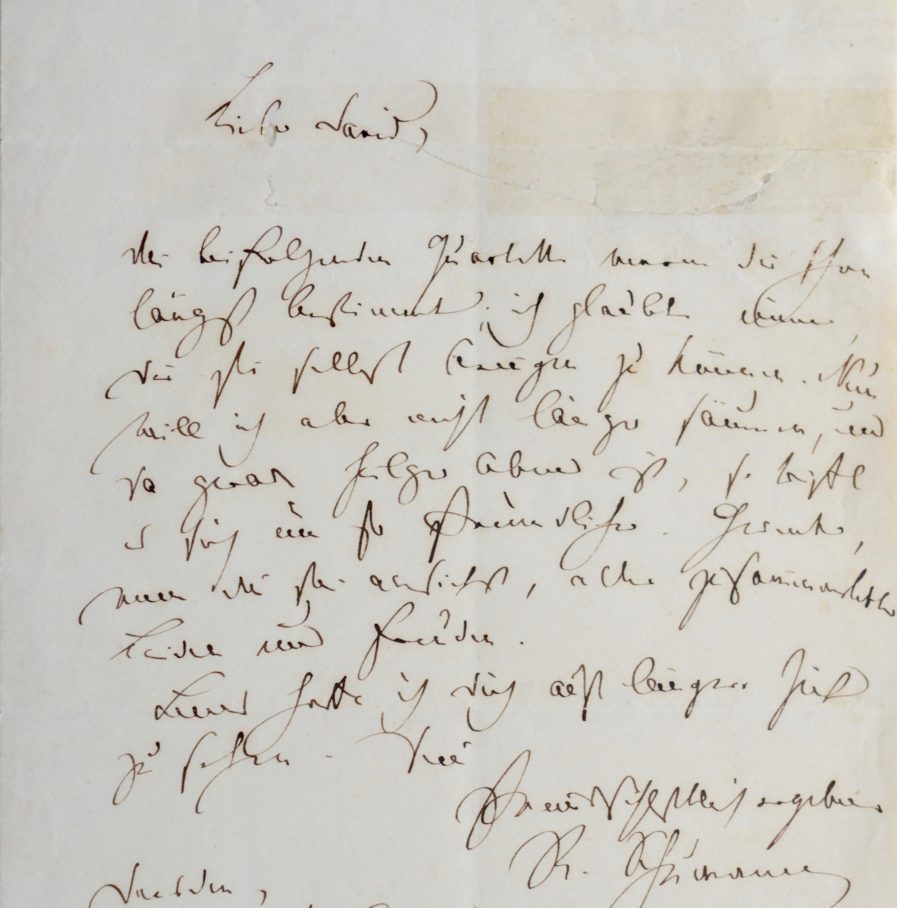 Lieber David,
die beifolgenden Quartette waren Dir schon
längst bestimmt; ich glaubte immer,
Dir sie selbst bringen zu können. Nun
will ich aber nicht länger säumen, und
da grade heilger Abend ist, so
es Dich um so freundlicher. Gedenke,
wenn Du sie ansiehst, alter zusammenerlebter
Leiden und Freuden.
hoffe ich Dich auf längere Zeit
zu sehen. Dein
freundschaftlich ergebener
R. Schumann
Dresden,